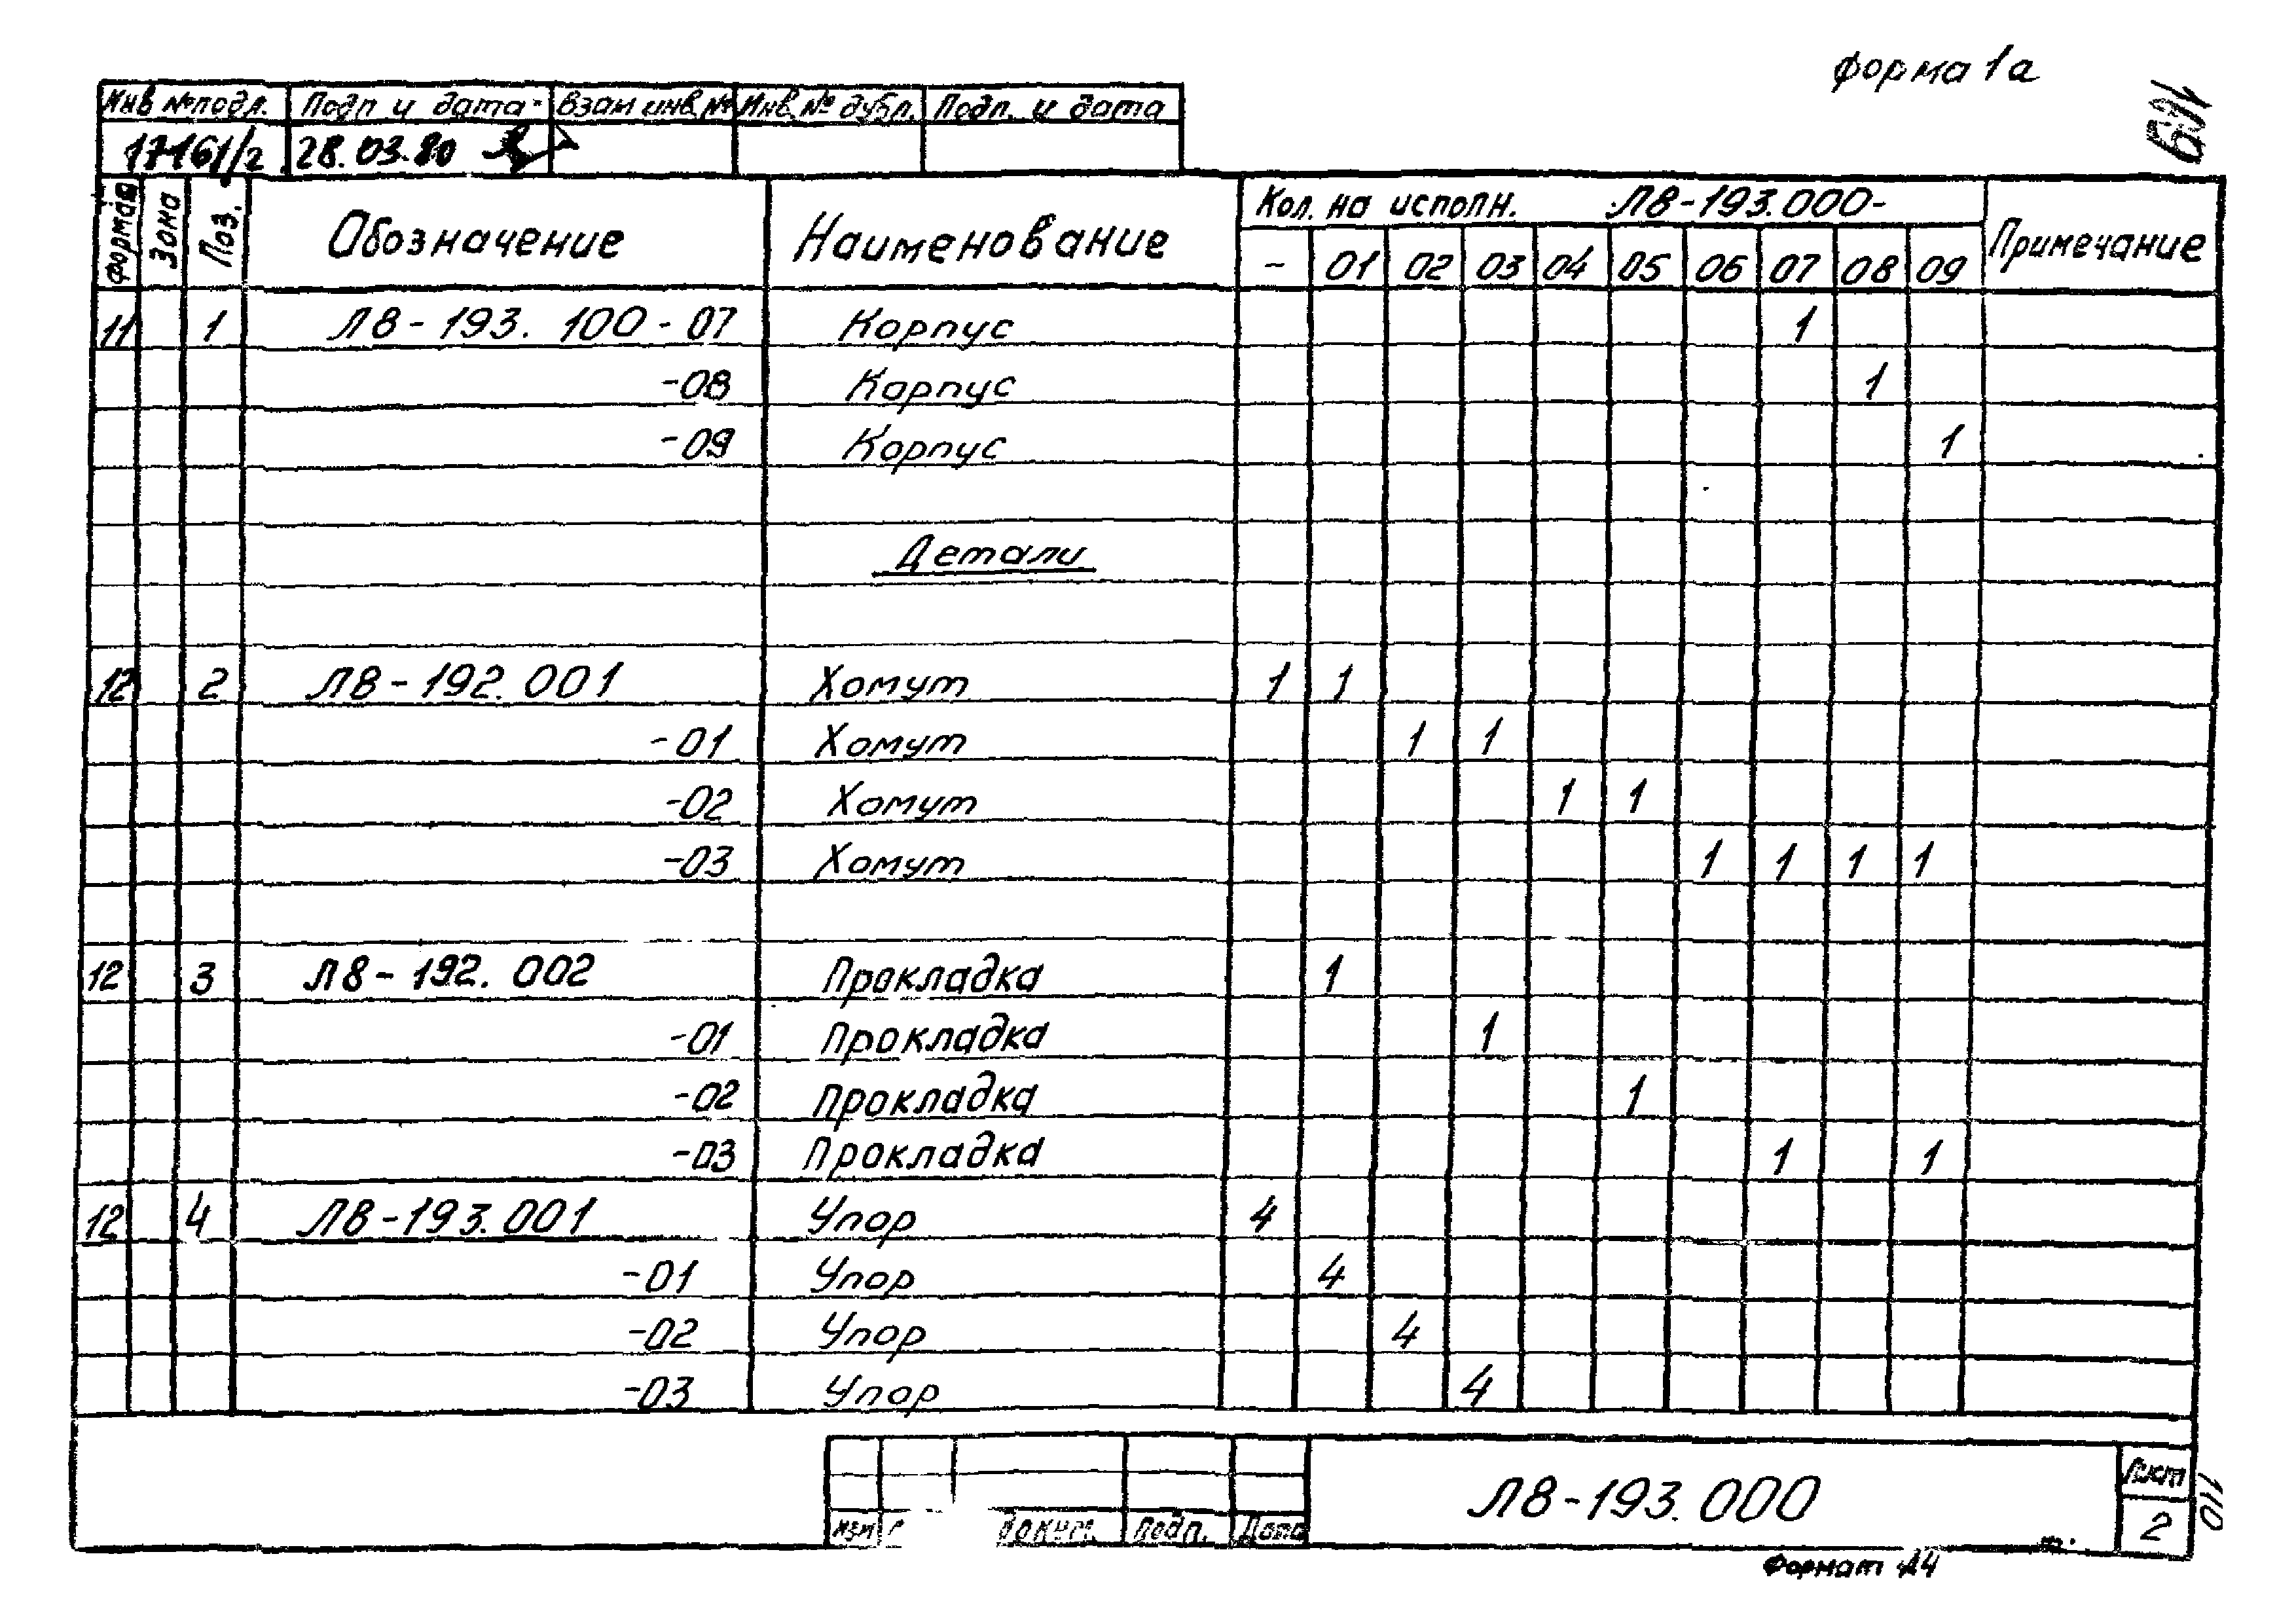 форма 1а
Инв № подл. Подп и дата Взам инв № Инв № дубл. Подп. и дата
17161/2 28.03.80
Формат Зона Поз. Обозначение Наименование Кол. на исполн. Л8-193.000- Примечание
- 01 02 03 04 05 06 07 08 09
11 1 Л8-193.100-07 Корпус 1
-08 Корпус 1
-09 Корпус 1
Детали
12 2 Л8-192.001 Хомут 1 1
-01 Хомут 1 1
-02 Хомут 1 1
-03 Хомут 1 1 1 1
12 3 Л8-192.002 Прокладка 1
-01 Прокладка 1
-02 Прокладка 1
-03 Прокладка 1 1
12 4 Л8-193.001 Упор 4
-01 Упор 4
-02 Упор 4
-03 Упор 4
Изм докум. Подп. Дата Л8-193.000 Лист
2
Формат А4
110